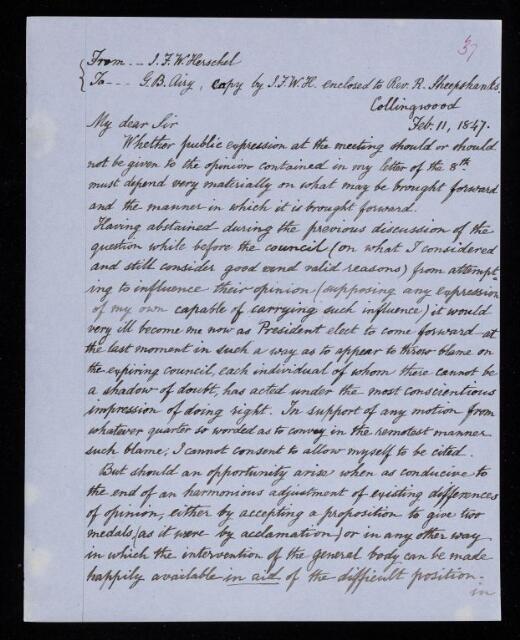 37
From -- J. F. W. Herschel
To --- G. B. Airy, copy by J. F. W. H. enclosed to Rev. R. Sheepshanks.
Collingwood
Feb. 11, 1847.
My dear Sir
Whether public expression at the meeting should or should
not be given to the opinion contained in my letter of the 8th
must depend very materially on what may be brought forward
and the manner in which it is brought forward.
Having abstained during the previous discussion of the
question while before the council (on what I considered
and still consider good and valid reasons) from attempt-
ing to influence their opinion (supposing any expression
of my own capable of carrying such influence) it would
very ill become me now as President elect to come forward at
the last moment in such a way as to appear to throw blame on
the expiring council, each individual of whom there cannot be
a shadow of doubt, has acted under the most conscientious
impression of doing right. In support of any motion from
whatever quarter so worded as to convey in the remotest manner
such blame, I cannot consent to allow myself to be cited.
But should an opportunity arise when as conducive to
the end of an harmonious adjustment of existing differences
of opinion, either by accepting a proposition to give two
medals, (as it were by acclamation) or in any other way
in which the intervention of the general body can be made
happily available in aid of the difficult position-
in